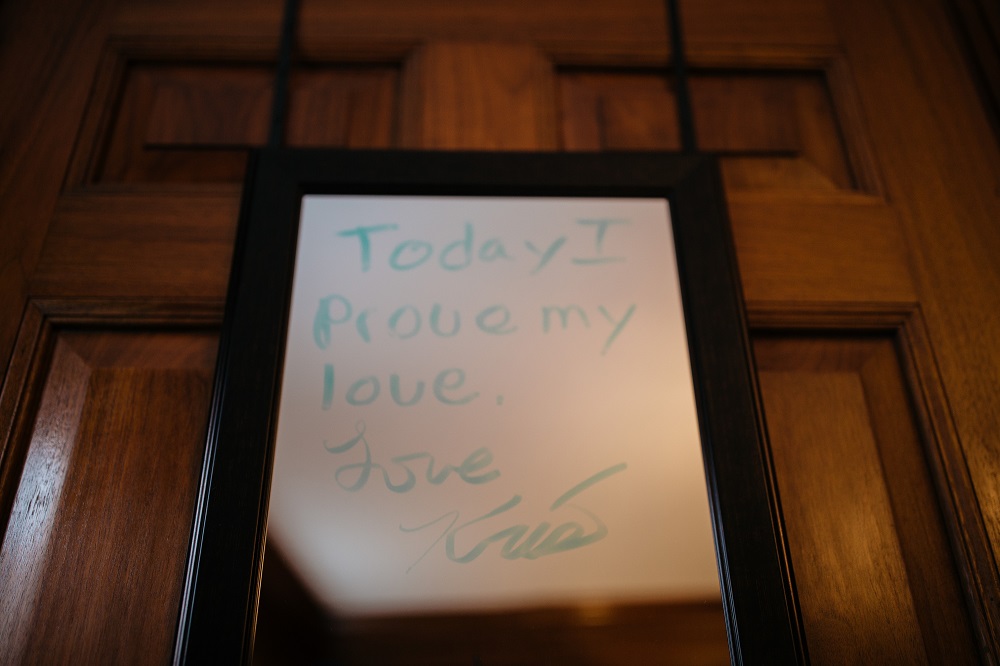 Today I
Prove my
love.
Love
Kris